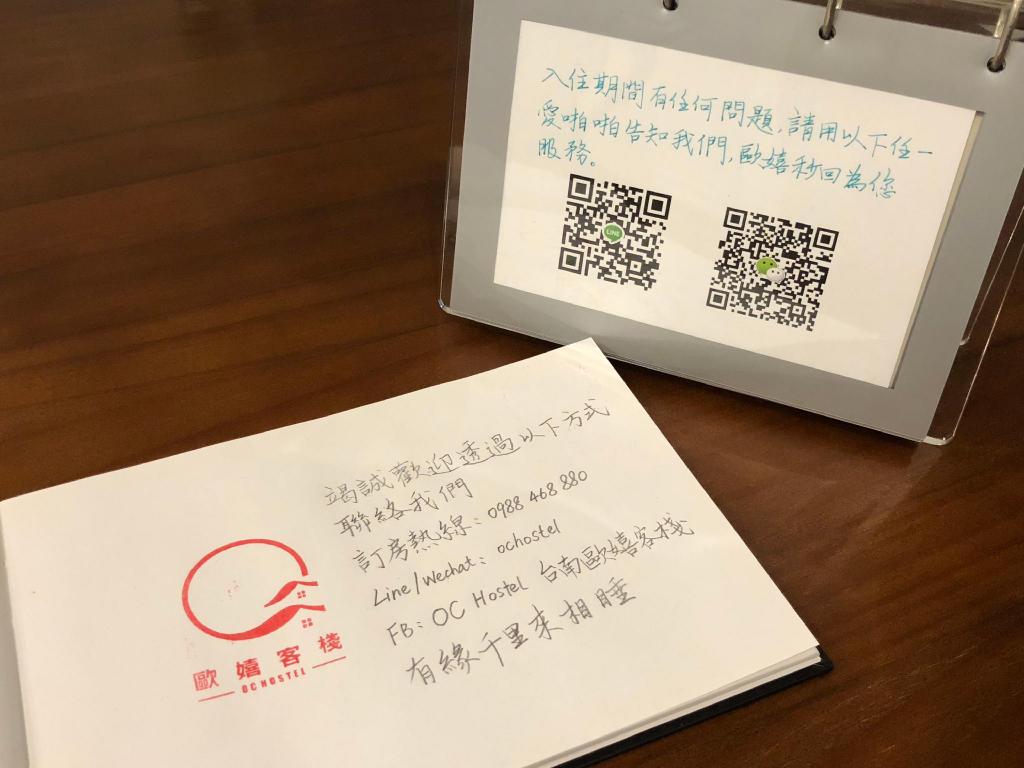 入住期間有任何問題,請用以下任一
愛啪啪告知我們,歐嬉秒回為您
服務。
LINE
竭誠歡迎透過以下方式
聯絡我們
訂房熱線:0988 468 880
Line/Wechat:ochostel
FB:OC Hostel 台南歐嬉客棧
有緣千里來相睡
歐嬉客棧
OC HOSTEL